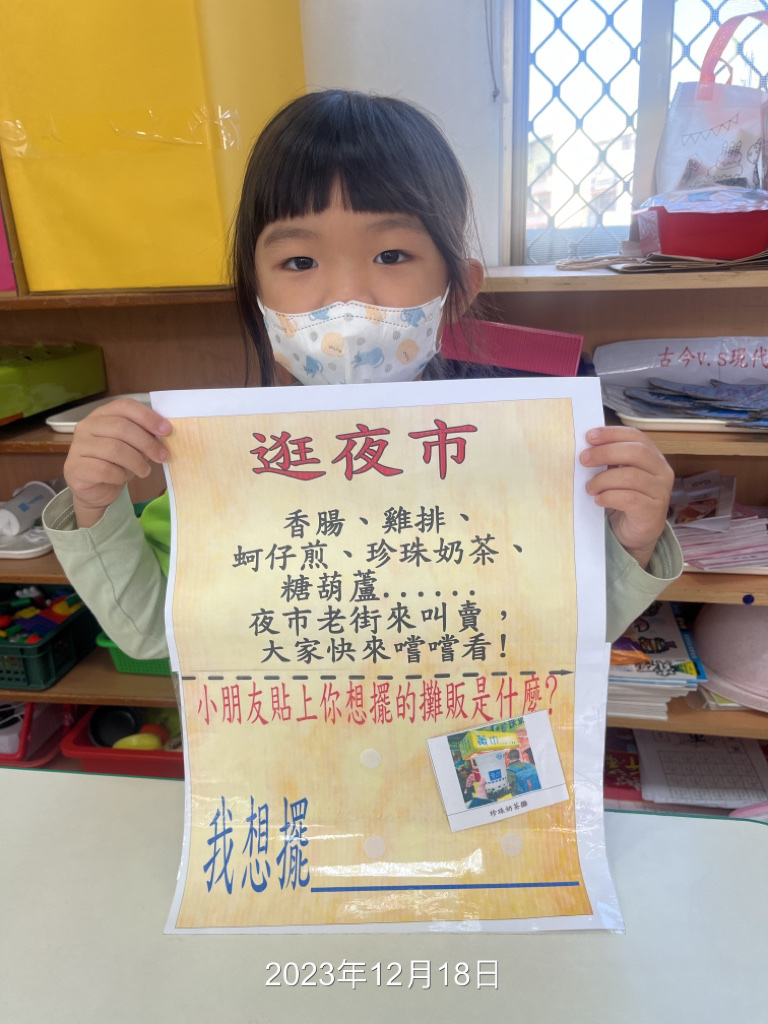 古今V.S現代
逛夜市
香腸、雞排、
蚵仔煎、珍珠奶茶、
糖葫蘆......
夜市老街來叫賣，
大家快來嚐嚐看！
小朋友貼上你想擺的攤販是什麼？
珍珠奶茶攤
我想擺
2023年12月18日